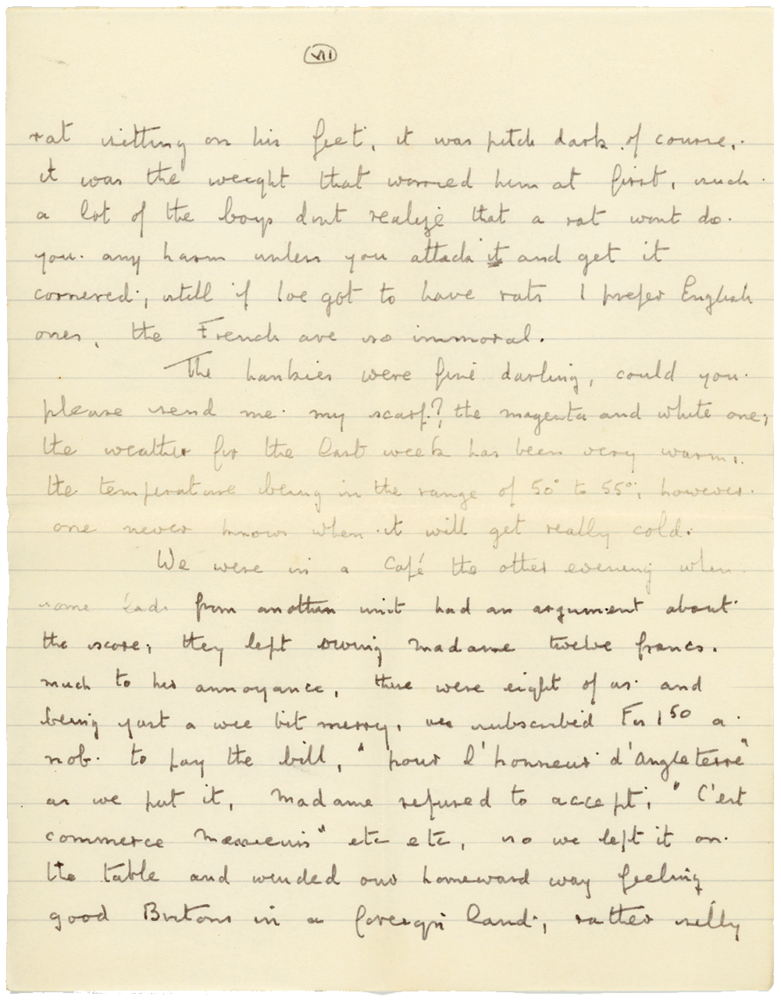 VII
rat sitting on his feet, it was pitch dark of course,
it was the weight that worried him at first, such
a lot of the boys dont realize that a rat wont do
you any harm unless you attack it and get it
cornered, still if Ive got to have rats I prefer English
ones, the French are so immoral.
The hankies were fine darling, could you
please send me my scarf? the magenta and white one,
the weather for the last week has been very warm,
the temperature being in the range of 50° to 55°, however
one never knows when it will get really cold.
We were in a Café the other evening when
some lads from another unit had an argument about
the score, they left owing Madame twelve francs.
much to her annoyance, there were eight of us and
being just a wee bit merry, we subscribed Frs 1 50 a
nob to pay the bill, "pour l'honneur d'Angleterre"
as we put it, Madame refused to accept, "C'est
commerce Messieurs" etc etc, so we left it on
the table and wended our homeward way feeling
good Britons in a foreign land, rather silly